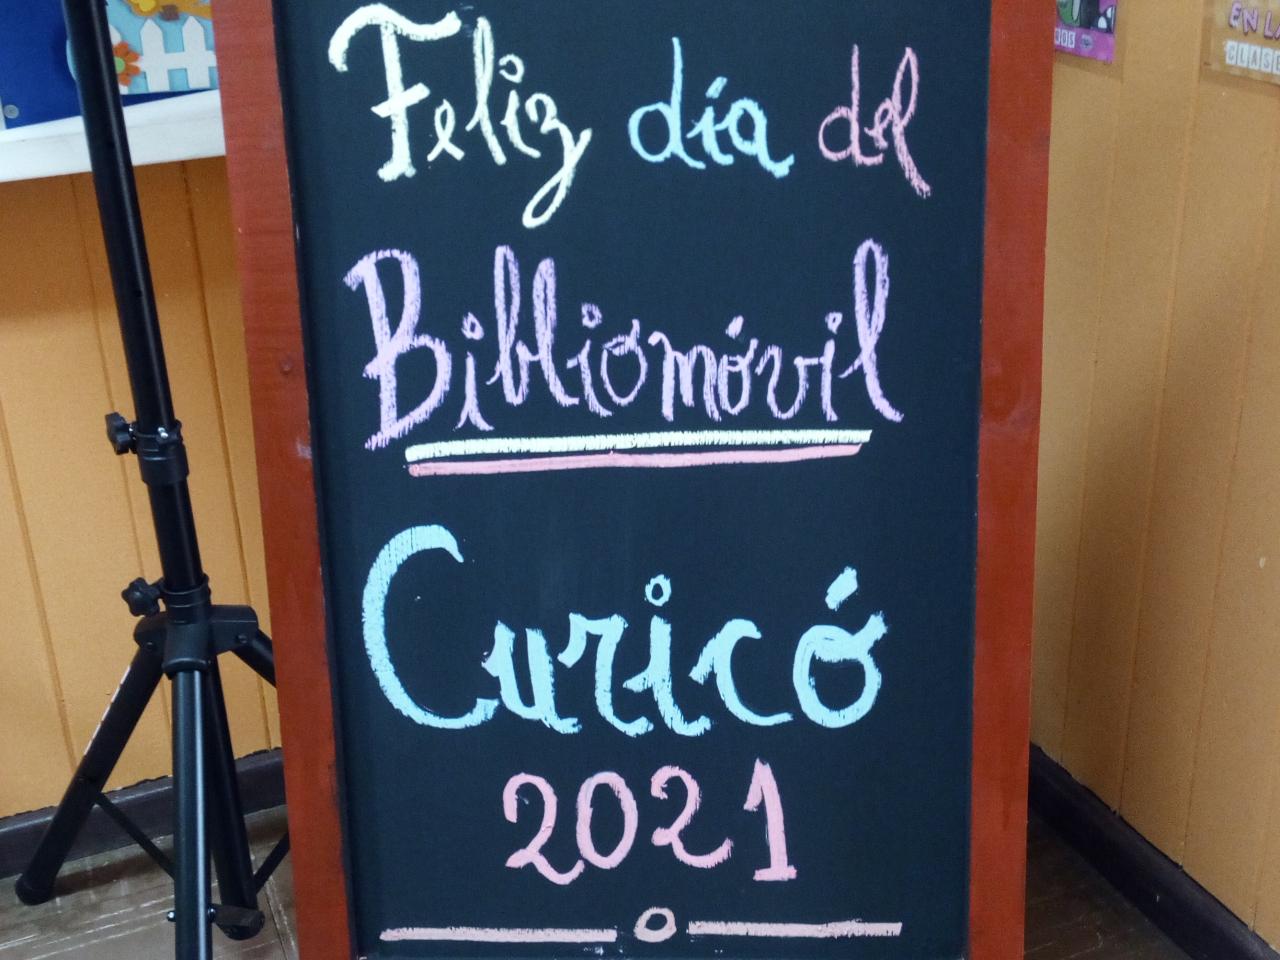 Feliz día del
Bibliomóvil
Curicó
2021
EN LA
CLASE